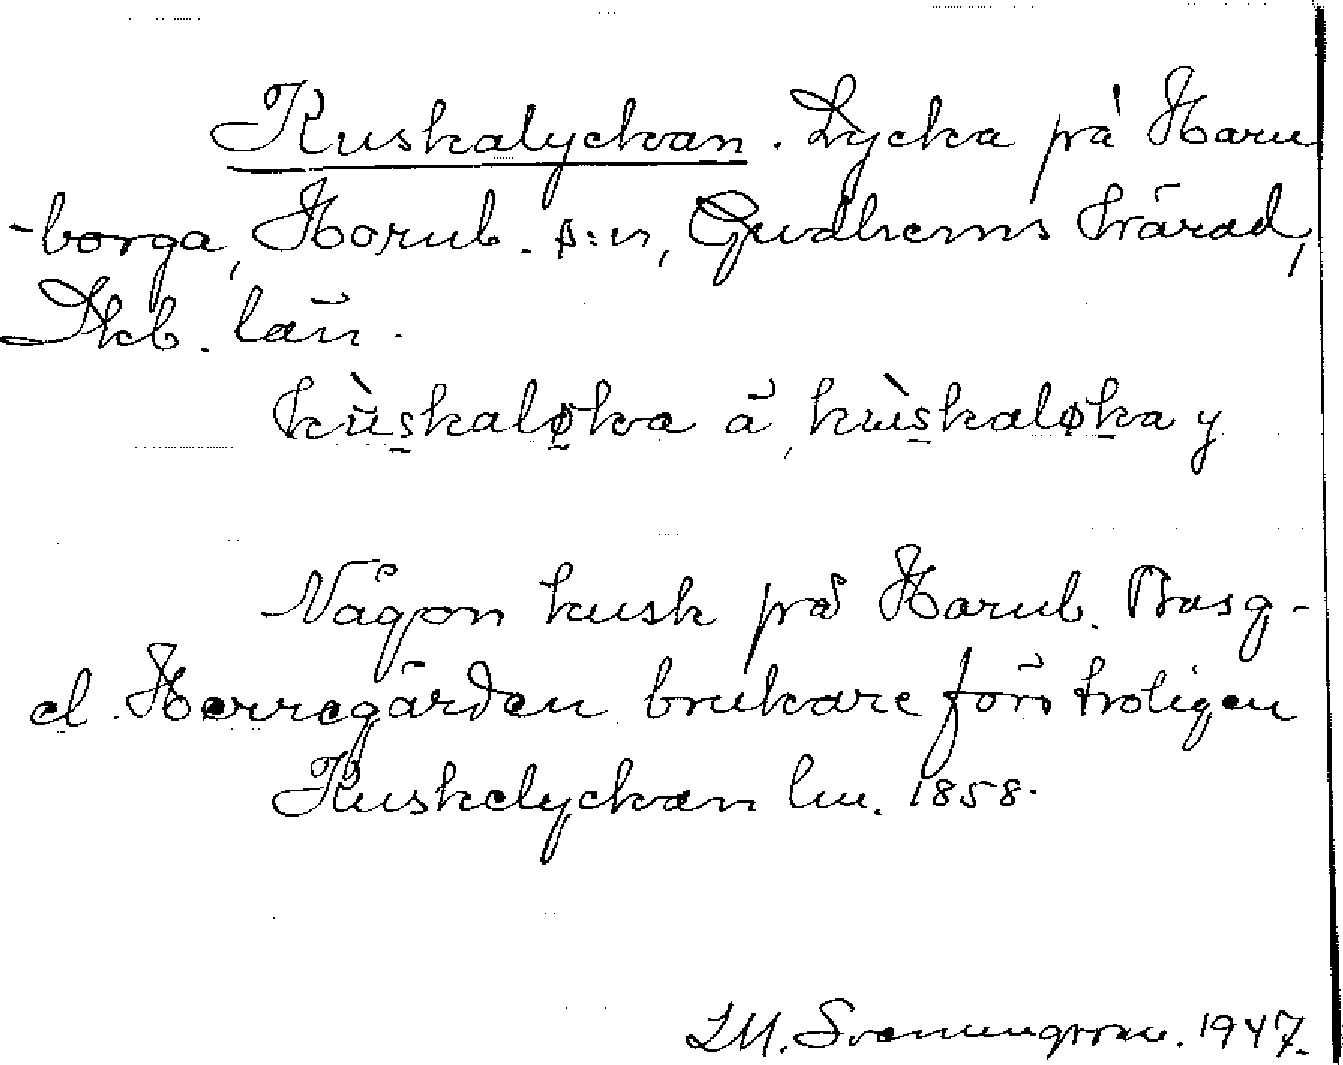 Kuskalyckan. Lycka på Horn
-borga, Hornb. s:n, Gudhems härad,
Skb. län.
kùskaløka ä, kùskaløka y
Någon kusk på Hornb. Bosg-
el. Herregården brukare förr troligen
Kuskelyckan lm. 1858.
LM. Svenungsson. 1947.